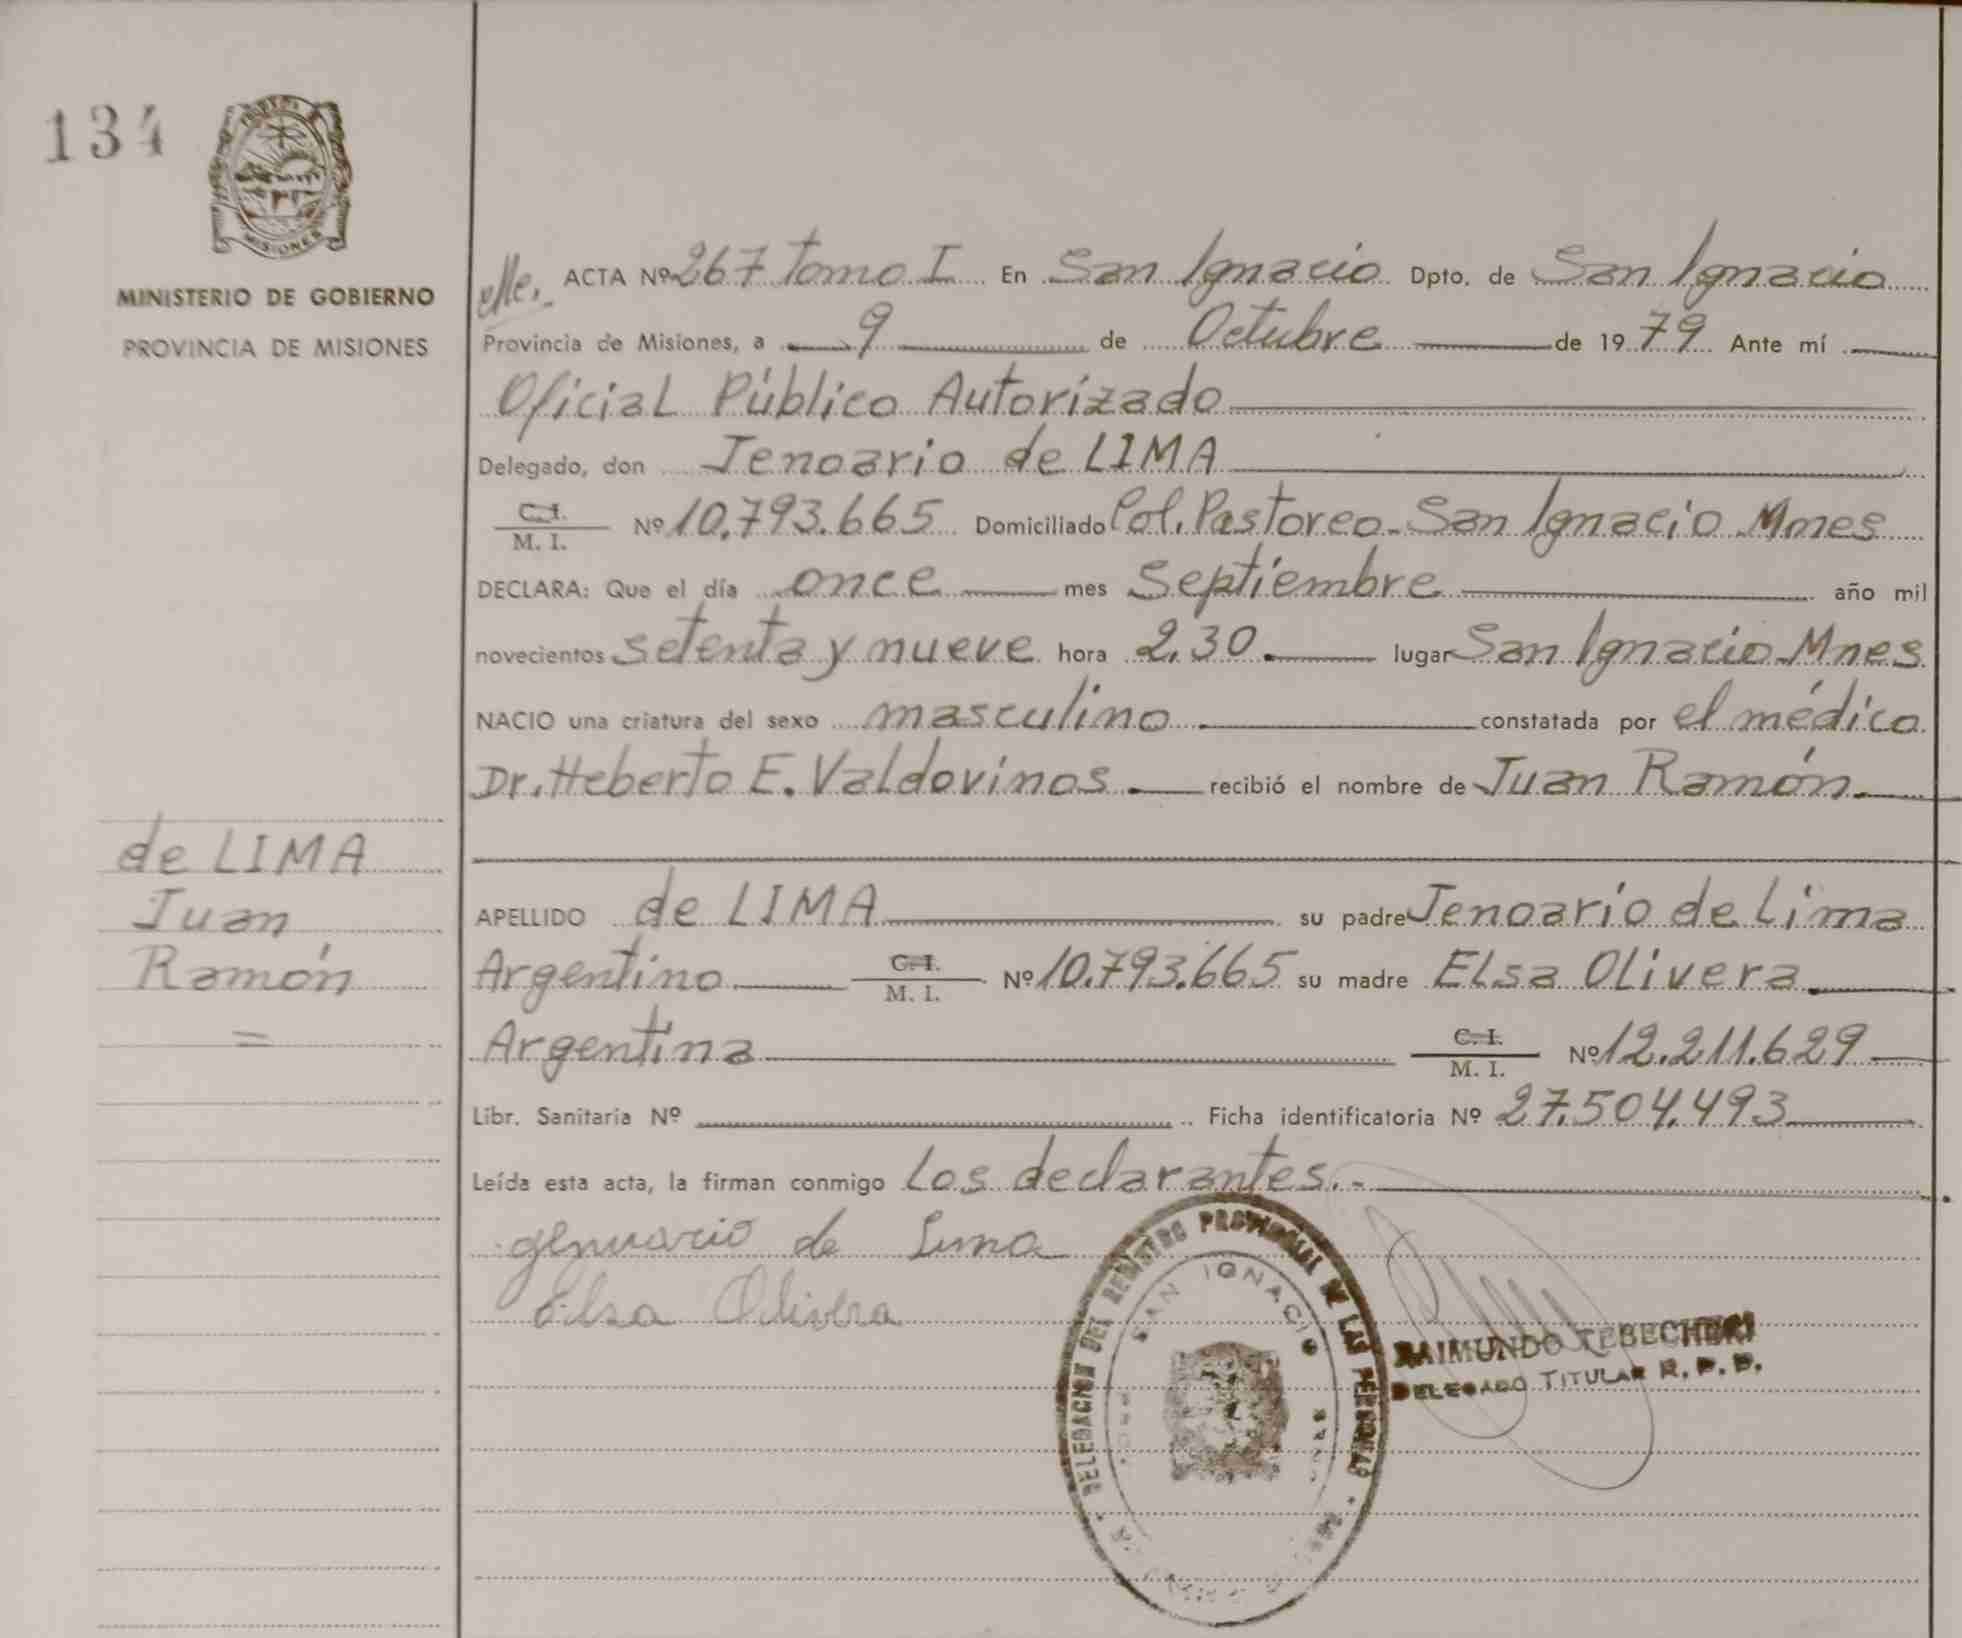 134
MISIONES
MINISTERIO DE GOBIERNO
PROVINCIA DE MISIONES
de LIMA
Juan
Ramón
=
ACTA Nº 267 tomo I En San Ignacio Dpto. de San Ignacio
Provincia de Misiones, a 9 de Octubre de 1979 Ante mí
Oficial Público Autorizado
Delegado, don Jenoario de LIMA
C.I. M. I. Nº 10.793.665 Domiciliado Col. Pastoreo - San Ignacio Mnes
DECLARA: Que el día once mes Septiembre año mil
novecientos setenta y nueve hora 2,30. lugar San Ignacio Mnes
NACIO una criatura del sexo masculino constatada por el médico
Dr. Heberto E. Valdovinos. recibió el nombre de Juan Ramón.
APELLIDO de LIMA su padre Jenoario de Lima
Argentino C.I. M. I. Nº 10.793.665 su madre ELsa OLivera
Argentina C.I. M. I. Nº 12.211.629
Libr. Sanitaria Nº Ficha identificatoria Nº 27.504.493
Leída esta acta, la firman conmigo Los declarantes.-
genuario de Lima
Elsa Olivera
DELEGACION DEL REGISTRO PROVINCIAL DE LAS PERSONAS
SAN IGNACIO
RAIMUNDO TEBECHERI
DELEGADO TITULAR R. P. P.